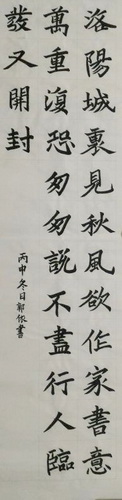 洛陽城裏見秋風欲作家書意
萬重復恐匆匆說不盡行人臨
發又開封
丙申冬日郭依書